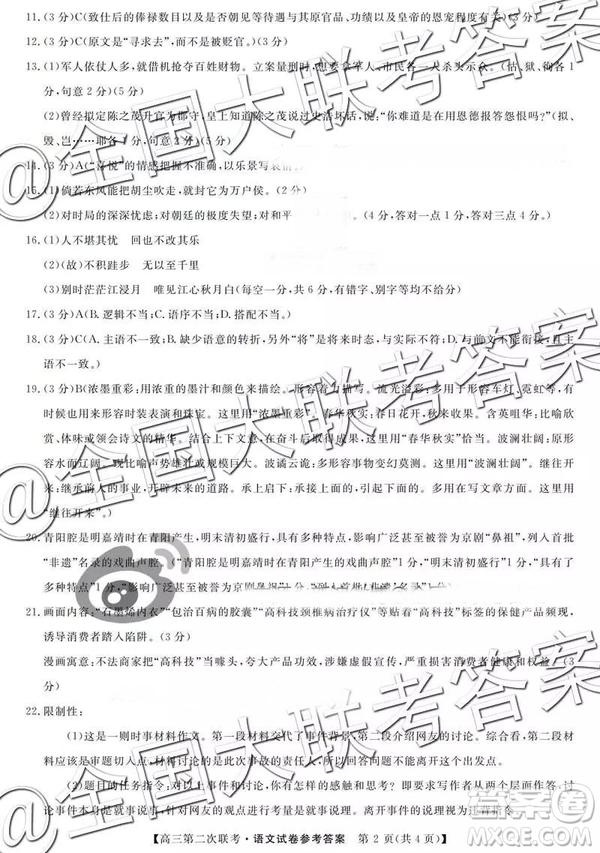 11.(3分)C(致仕后的俸禄数目以及是否朝见议政与其原官品、功过以及皇帝的恩宠程度有关)(3分)
12.(3分)C(原文是“寻求去”,而不是被贬官。)(3分)
13.(1)军人依仗人多,就借机抢夺百姓财物。立案量刑时,想要拿军人、市民各一人
分,句意2分)(5分)
(2)曾经拟定陈之茂升官为郡守,目睹陈之茂说过史浩坏话,说:“你难道是在用恩德报答怨恨吗?”(拟、
毁、岂……耶各1分,句意2分)
14.(3分)A(“喜悦”的情感把握不准确,以乐景写
15.(1)倘若东风能把胡尘吹走,就封它为万户侯。(2分)
(2)对时局的深深忧虑;对朝廷的极度失望;对和平 (4分,答对一点1分,答对三点4分)
16.(1)人不堪其忧 回也不改其乐
(2)(故)不积跬步 无以至千里
(3)别时茫茫江浸月 唯见江心秋月白(每空一分,共6分,有错不给分)
17.(3分)A(B:逻辑不当;C:语序不当;D:搭配不当。)
18.(3分)C(A、主语不一致;B、缺少语意的转折,另外“将”是将来时态,与实际表达不一致;D、关联词和主
语不一致。)
19.(3分)B(浓墨重彩:用浓重的墨汁和颜色来描绘。形容着力描写。流光溢彩:多用于形容车灯、霓虹等,有
时候也用来形容时装表演和珠宝。这里用“浓墨重彩”。春华秋实:春日花开,秋来果香。含英咀华:比喻欣
赏、体味或领会诗文的精华。根据上下文语意,在奋斗后取得收获,这里用“春华秋实”恰当;波澜壮阔:原形
容水面辽阔。现比喻声势雄壮或规模巨大。波谲云诡:多形容事物变幻莫测。这里用“波澜壮阔”。继往开
来:继承前人的事业,开辟未来的道路。承上启下:承接上面的,引起下面的。多用在写文章方面。这里用“继
往开来”。)
20.青阳腔是明嘉靖时在青阳产生,明末清初盛行,具有多种特点,影响广泛甚至被誉为京剧“鼻祖”,列入首批
“非遗”名录的戏曲声腔。(“青阳腔是明嘉靖时在青阳产生的戏曲声腔”1分,“明末清初盛行”1分,“具有了
多种特点”1分,“影响广泛甚至被誉为京剧
21.画面内容:“石墨烯内衣”“包治百病的胶囊”“高科技颈椎病治疗仪”等贴着“高科技”标签的保健产品频现,
诱导消费者踏入陷阱。(3分)
漫画寓意:不法商家把“高科技”当做噱头,夸大产品功效,涉嫌虚假宣传,严重影响消费者健康和权益。(3
分)
22.限制性:
(1)这是一则时事材料作文。第一段材料交代了事件背景,第二段介绍网友的讨论。综合看,第二段材
料应该是审题切入点,材料讨论的 写作不能离开这个出发点。
(2)题目在最后说,对以上事件和讨论,你有怎样的感触和思考?即要求写作者从两个大的层面去讨论,
事件本身是事实就为事实,对网友的观点进行考量与思考就是讨论的直接对象。离开事件的
【高三第二次联考·语文试卷参考答案 第2页(共4页)】
@全国大联考答案
@全国大联考答案
@全国大联考答案